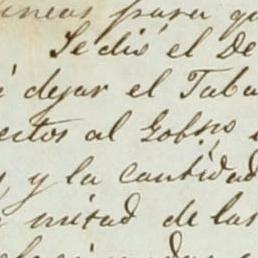 lineas para qu
Se dió el De
á dejar el Taba
ectos al Gobno.
y la cantidad
mitad de las